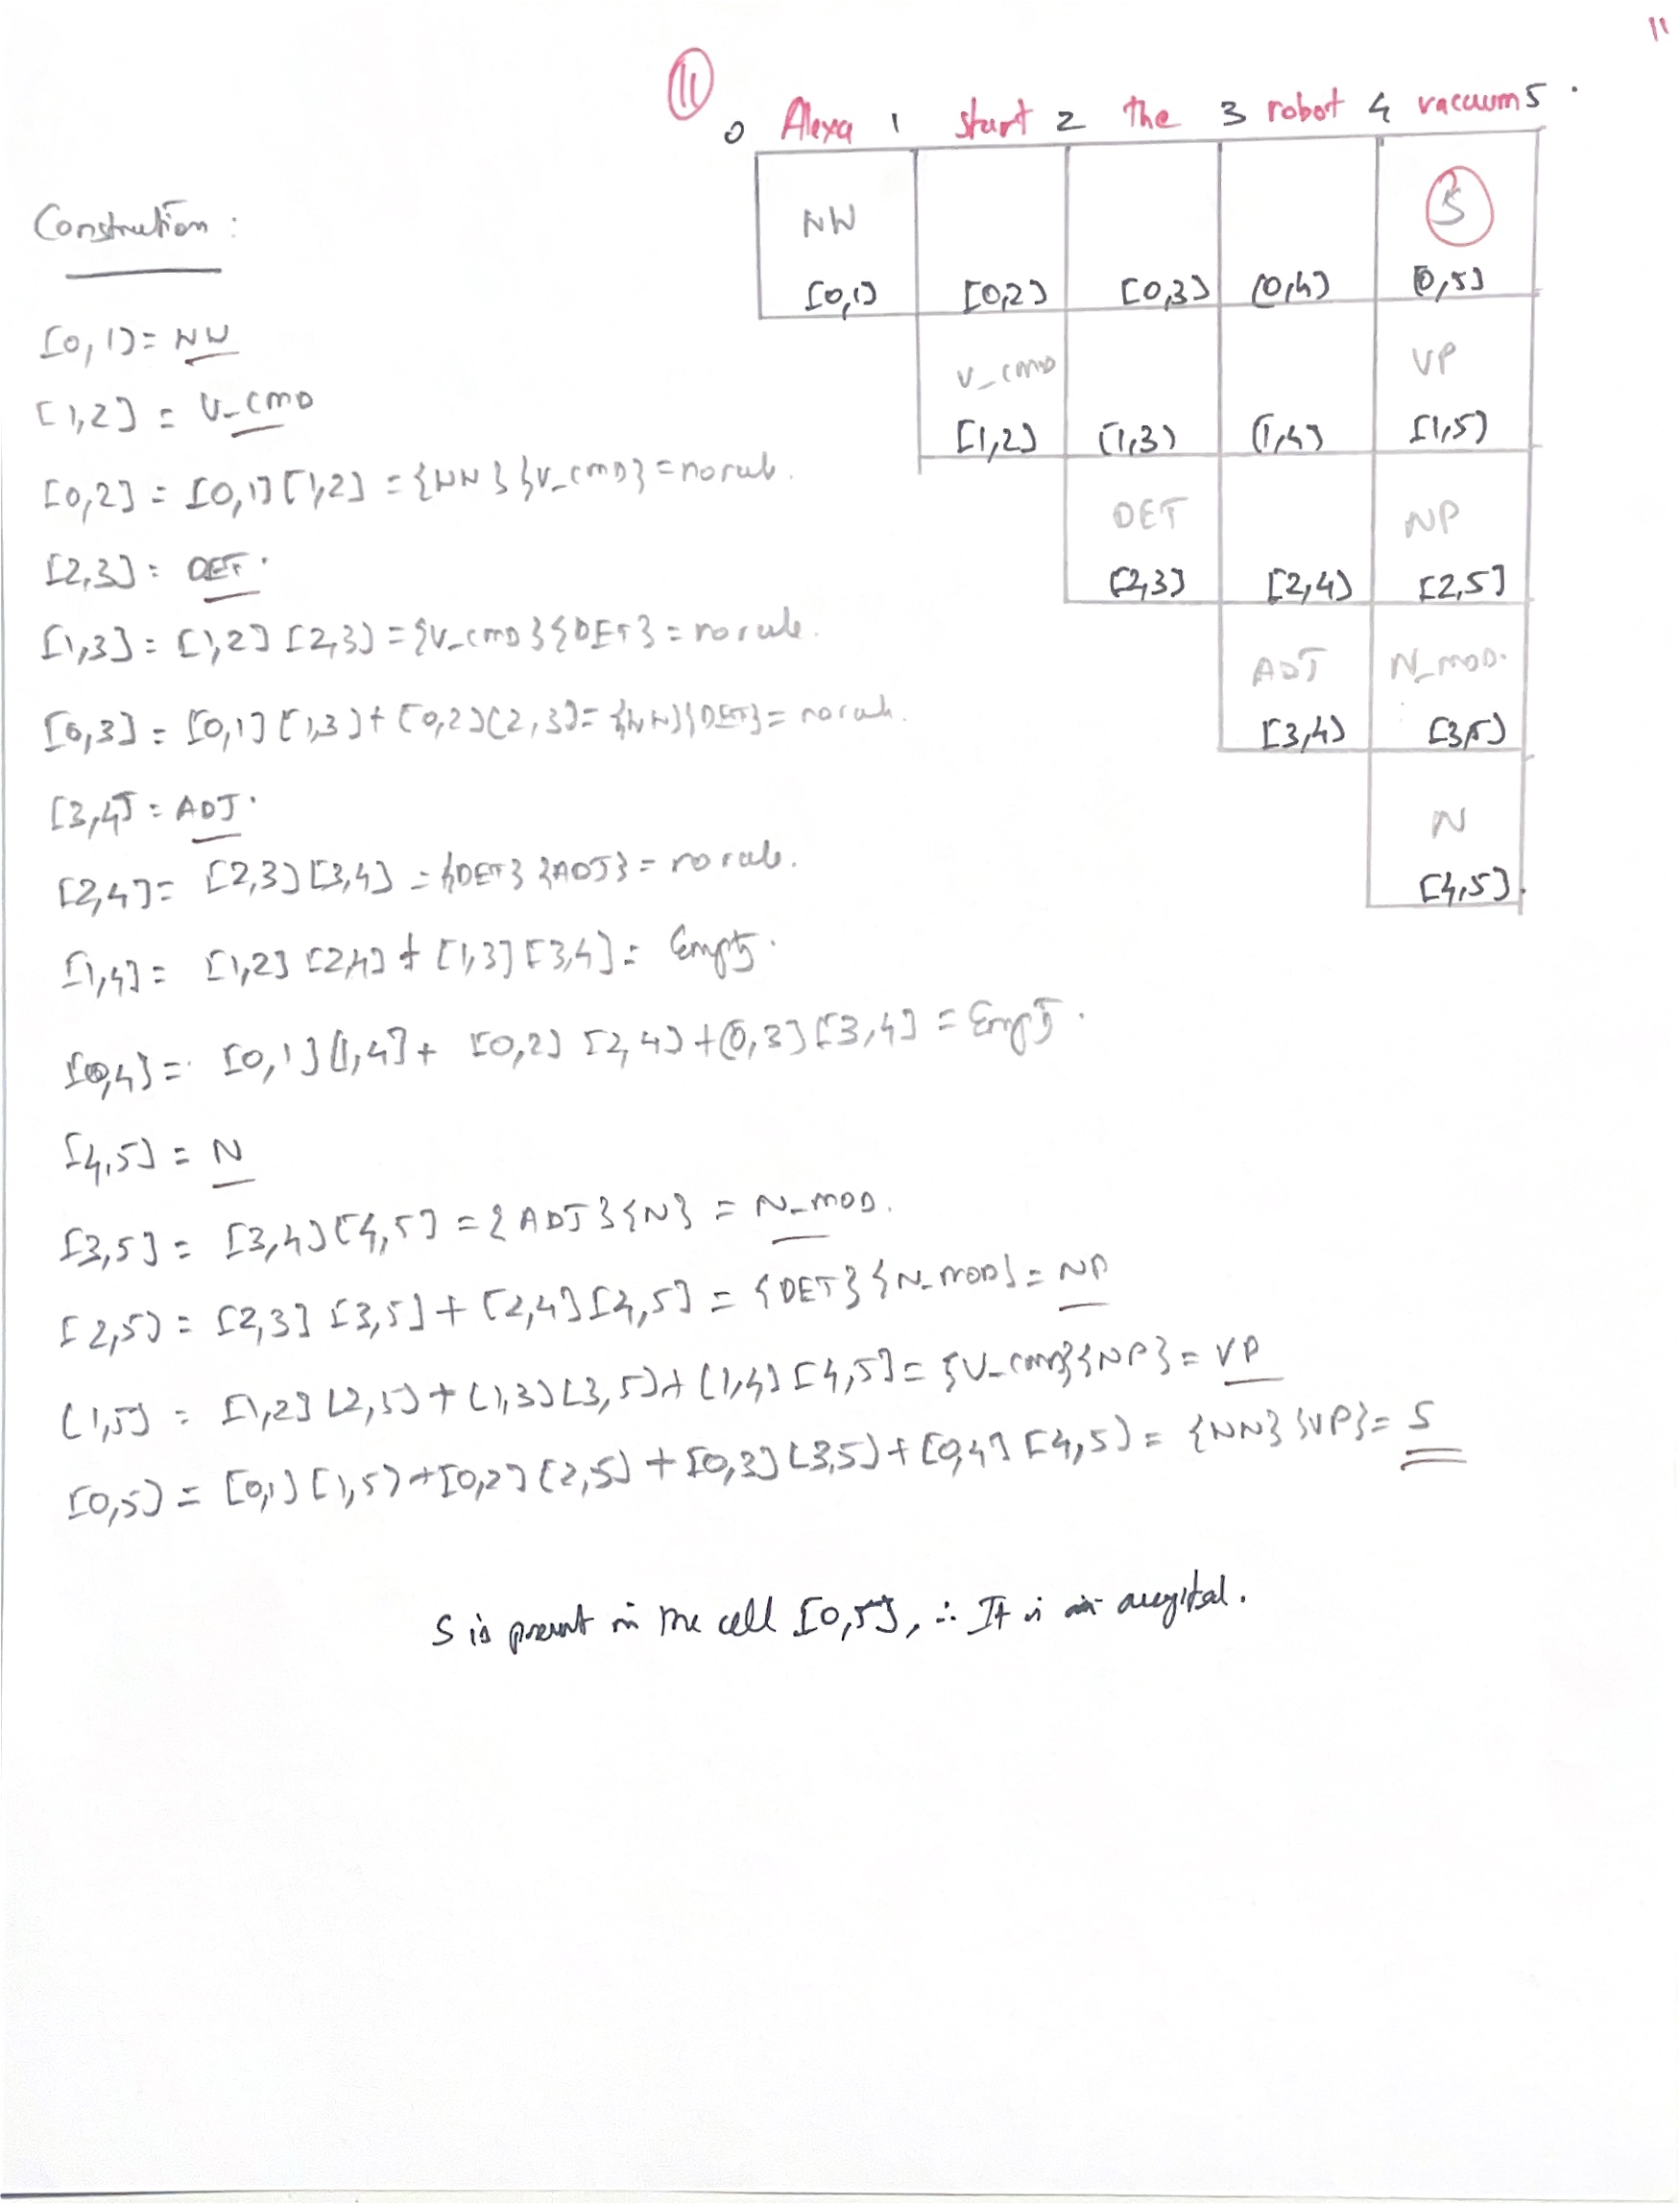 11
⑪
0 Alexa 1 start 2 the 3 robot 4 vacuum 5 .
NN S
[0,1] [0,2] [0,3] [0,4] [0,5]
V_CMD VP
[1,2] [1,3] [1,4] [1,5]
DET NP
[2,3] [2,4] [2,5]
ADJ N_MOD.
[3,4] [3,5]
N
[4,5].
Construction :
[0,1] = NN
[1,2] = V_CMD
[0,2] = [0,1] [1,2] = {NN} {V_CMD} = no rule.
[2,3] = DET.
[1,3] = [1,2] [2,3] = {V_CMD} {DET} = no rule.
[0,3] = [0,1] [1,3] + [0,2] [2,3] = {NN} {DET} = no rule.
[3,4] = ADJ.
[2,4] = [2,3] [3,4] = {DET} {ADJ} = no rule.
[1,4] = [1,2] [2,4] + [1,3] [3,4] = Empty.
[0,4] = [0,1] [1,4] + [0,2] [2,4] + [0,3] [3,4] = Empty.
[4,5] = N
[3,5] = [3,4] [4,5] = {ADJ} {N} = N_MOD.
[2,5] = [2,3] [3,5] + [2,4] [4,5] = {DET} {N_MOD} = NP
[1,5] = [1,2] [2,5] + [1,3] [3,5] + [1,4] [4,5] = {V_CMD} {NP} = VP
[0,5] = [0,1] [1,5] + [0,2] [2,5] + [0,3] [3,5] + [0,4] [4,5] = {NN} {VP} = S
S is present in the cell [0,5], ∴ It is